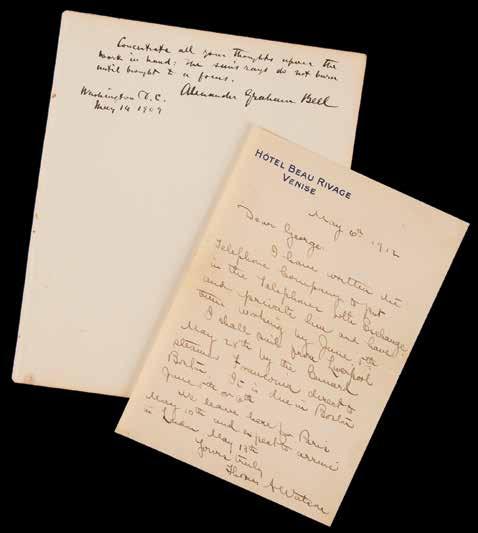 Concentrate all your thoughts upon the
work in hand: The sun's rays do not burn
until brought to a focus.
Alexander Graham Bell
Washington D.C.
May 14 1909
HÔTEL BEAU RIVAGE
VENISE
May 6th 1912
Dear George,
I have written the
Telephone Company to put
in the telephones both Exchange
and private line and have
them working by June 5th
I shall sail from Liverpool
May 28th by the Cunard
steamer Franconia direct to
Boston. It is due in Boston
June 5th or 6th
We leave here for Paris
May 10th and expect to arrive
in May 13th
Yours truly
Thomas A Watson